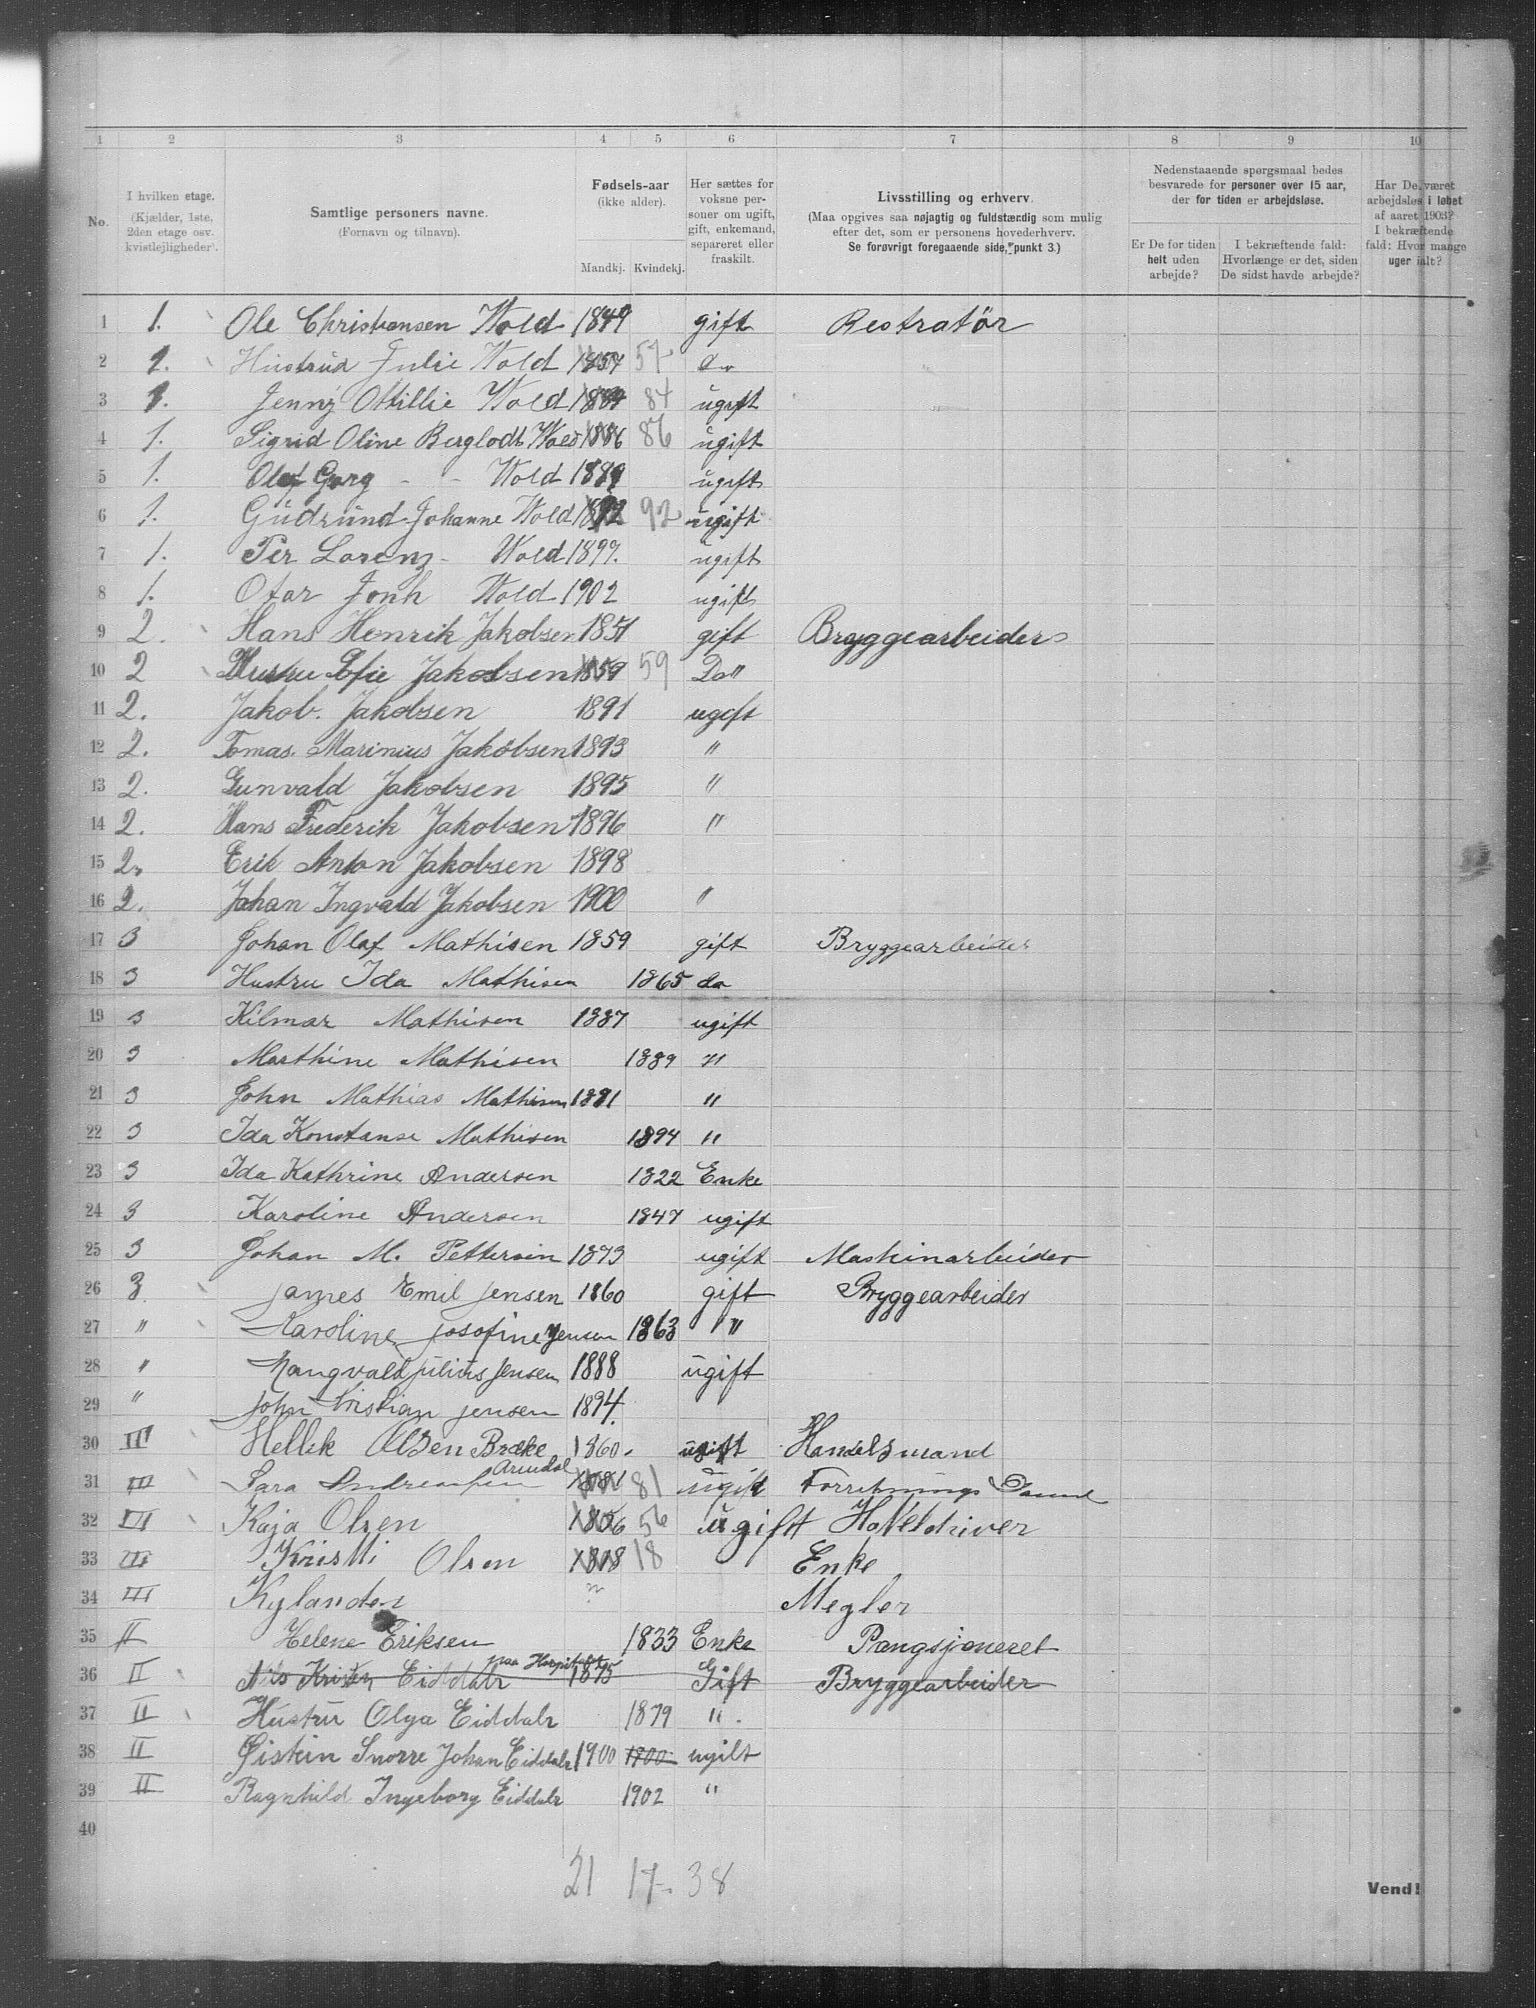 1 2 3 4 5 6 7 8 9 10
No.
I hvilken etage. (Kjælder, 1ste, 2den etage osv. kvistlejligheder).
Samtlige personers navne. (Fornavn og tilnavn).
Fødsels-aar (ikke alder).
Mandkj. Kvindekj.
Her sættes for voksne personer om ugift, gift, enkemand, separeret eller fraskilt.
Livsstilling og erhverv. (Maa opgives saa nøjagtig og fuldstændig som mulig efter det, som er personens hovederhverv. Se forøvrigt foregaaende side, punkt 3.)
Nedenstaaende spørgsmaal bedes besvarede for personer over 15 aar, der for tiden er arbejdsløse.
Er De for tiden helt uden arbejde?
I bekræftende fald: Hvorlænge er det, siden De sidst havde arbejde?
Har De været arbejdsløs i løbet af aaret 1903? I bekræftende fald: Hvor mange uger ialt?
1 1. Ole Christiansen Wold 1849 gift Restratör
2 1. Hustrud Julie Wold 1857 57 Do
3 1. Jenny Ottillie Wold 1884 84 ugift
4 1. Sigrid Oline Berglodt Wold 1886 86 ugift
5 1. Olaf Gorg - - Wold 1889 ugift
6 1. Gudrund Johanne Wold 1892 92 ugift
7 1. Per Lorenz - Wold 1897. ugift
8 1. Otar Jonh Wold 1902 ugift
9 2. Hans Henrik Jakobsen 1851 gift Bryggearbeider
10 2 Hustru Efie Jakobsen 1859 59 Do"
11 2. Jakob. Jakobsen 1891 ugift
12 2. Tomas. Marinius Jakobsen 1893 "
13 2. Gunvald Jakobsen 1895 "
14 2. Hans Frederik Jakobsen 1896 "
15 2. Erik Anton Jakobsen 1898
16 2. Johan Ingvald Jakobsen 1900 "
17 3 Johan Olaf Mathisen 1859 gift Bryggearbeider
18 3 Hustru Ida Mathisen 1865 do
19 3 Hilmar Mathisen 1887 ugift
20 3 Marthine Mathisen 1889 "
21 3 John Mathias Mathisen 1891 "
22 3 Ida Konstanse Mathisen 1894 "
23 3 Ida Kathrine Andersen 1822 Enke
24 3 Karoline Andersen 1847 ugift
25 3 Johan M. Pettersin 1873 ugift Maskinarbeider
26 3 James Emil Jensen 1860 gift Bryggearbeider
27 " Karoline Josofine Jensen 1863 "
28 " Rangvald Julius Jensen 1888 ugift
29 " John Cristian Jensen 1894.
30 III Hellik Olsen Bræke 1860. ugift Handelsmand
31 III Sara Andreassen Arendal 1881 81 ugift Forretnings Dame
32 III Kaja Olsen 1856 56 ugift Hoteldriver
33 III Kristti Olsen 1818 18 Enke
34 III Kylander ? Megler
35 II Helene Eriksen 1833 Enke Pængsjoneret
36 II Nils Kristen Eiddalr paa Hospitalet 1875 Gift Bryggearbeider
37 II Hustru Olga Eiddalr 1879 "
38 II Øistein Snorre Johan Eiddalr 1900 1900 ugift
39 II Ragnhild Ingeborg Eiddalr 1902 "
40
21 17. 38
Vend!